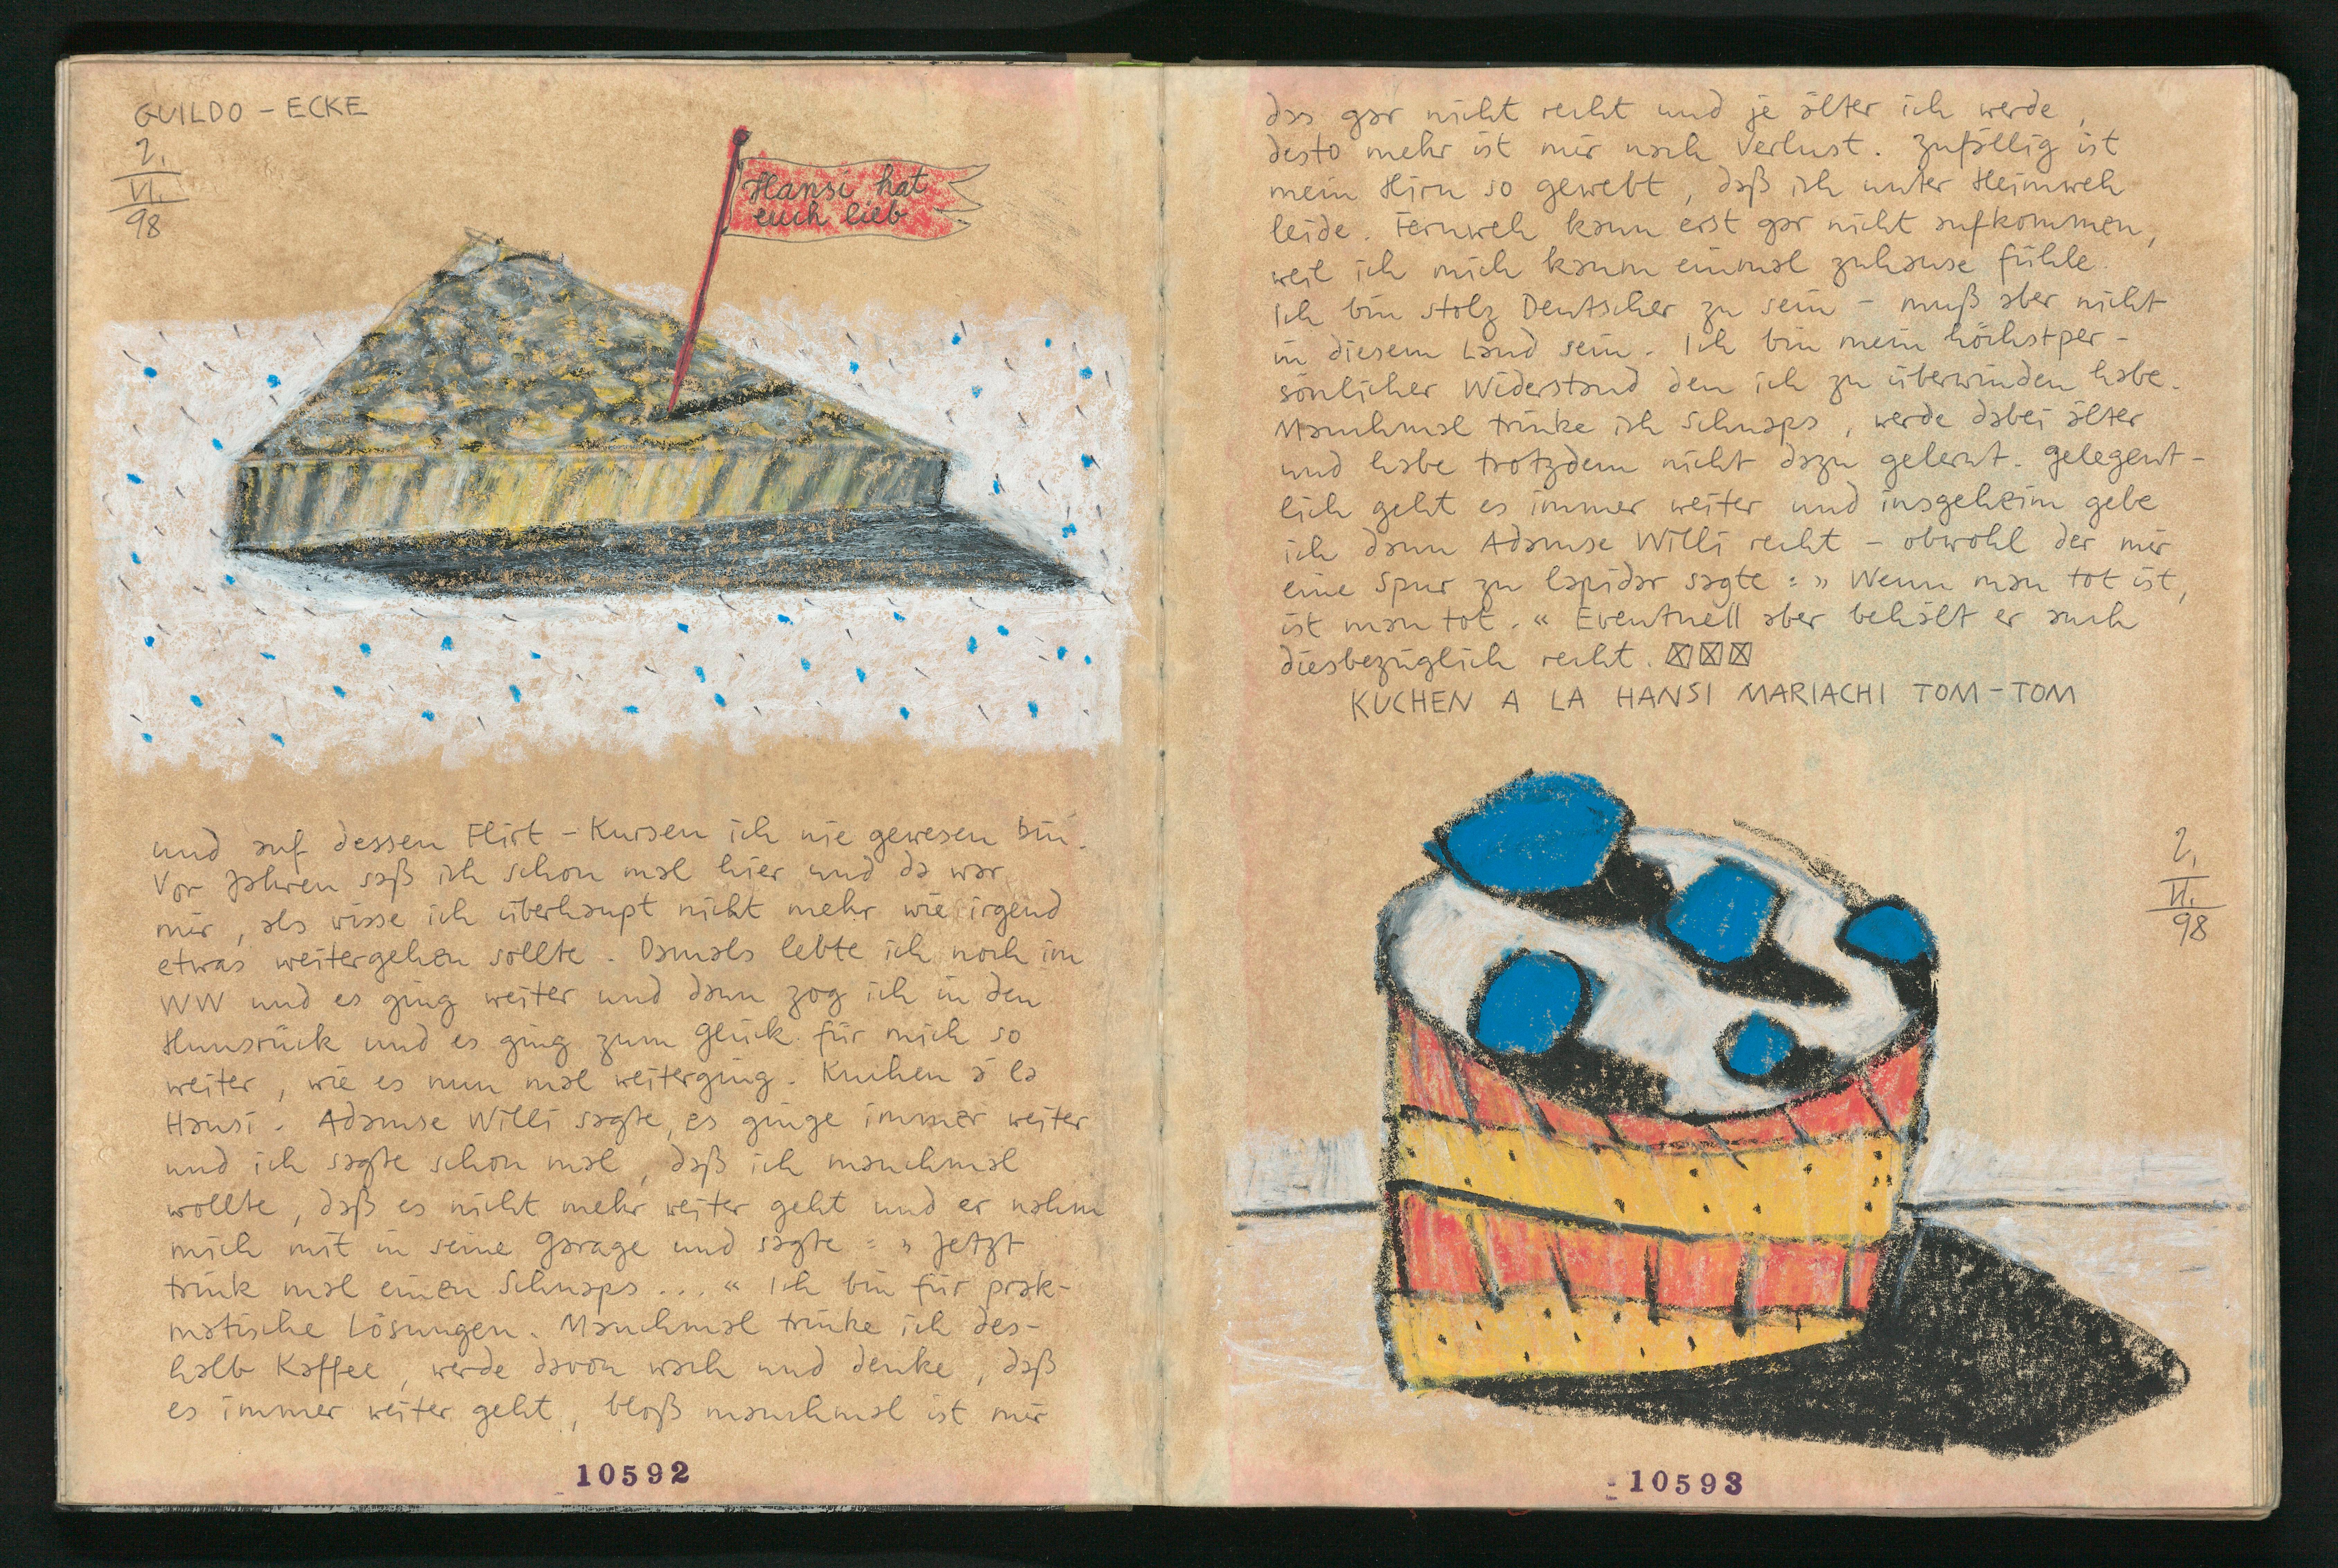 GUILDO – ECKE
2.
VI.
98
Hansi hat
euch lieb
und auf dessen Flirt – Kursen ich nie gewesen bin.
Vor Jahren saß ich schon mal hier und da war
mir, als wisse ich überhaupt nicht mehr wie irgend
etwas weitergehen sollte. Damals lebte ich noch im
WW und es ging weiter und dann zog ich in den
Hunsrück und es ging zum Glück für mich so
weiter, wie es nun mal weiterging. Kuchen á la
Hansi. Adamse Willi sagte, es ginge immer weiter
und ich sagte schon mal, daß ich manchmal
wollte, daß es nicht mehr weiter geht und er nahm
mich mit in seine Garage und sagte : » Jetzt
trink mal einen Schnaps ... « Ich bin für prak-
matische Lösungen. Manchmal trinke ich des-
halb Kaffee, werde davon wach und denke, daß
es immer weiter geht, bloß manchmal ist mir
10592
das gar nicht recht und je älter ich werde,
desto mehr ist mir nach Verlust. Zufällig ist
mein Hirn so gewebt, daß ich unter Heimweh
leide. Fernweh kann erst gar nicht aufkommen,
weil ich mich kaum einmal zuhause fühle.
Ich bin stolz Deutscher zu sein – muß aber nicht
in diesem Land sein. Ich bin mein höchstper-
sönlicher Widerstand den ich zu überwinden habe.
Manchmal trinke ich Schnaps, werde dabei älter
und habe trotzdem nicht dazu gelernt. Gelegent-
lich geht es immer weiter und insgeheim gebe
ich dann Adamse Willi recht – obwohl der mir
eine Spur zu lapidar sagte : » Wenn man tot ist,
ist man tot. « Eventuell aber behält er auch
diesbezüglich recht.
KUCHEN A LA HANSI MARIACHI TOM–TOM
2.
VI.
98
10593